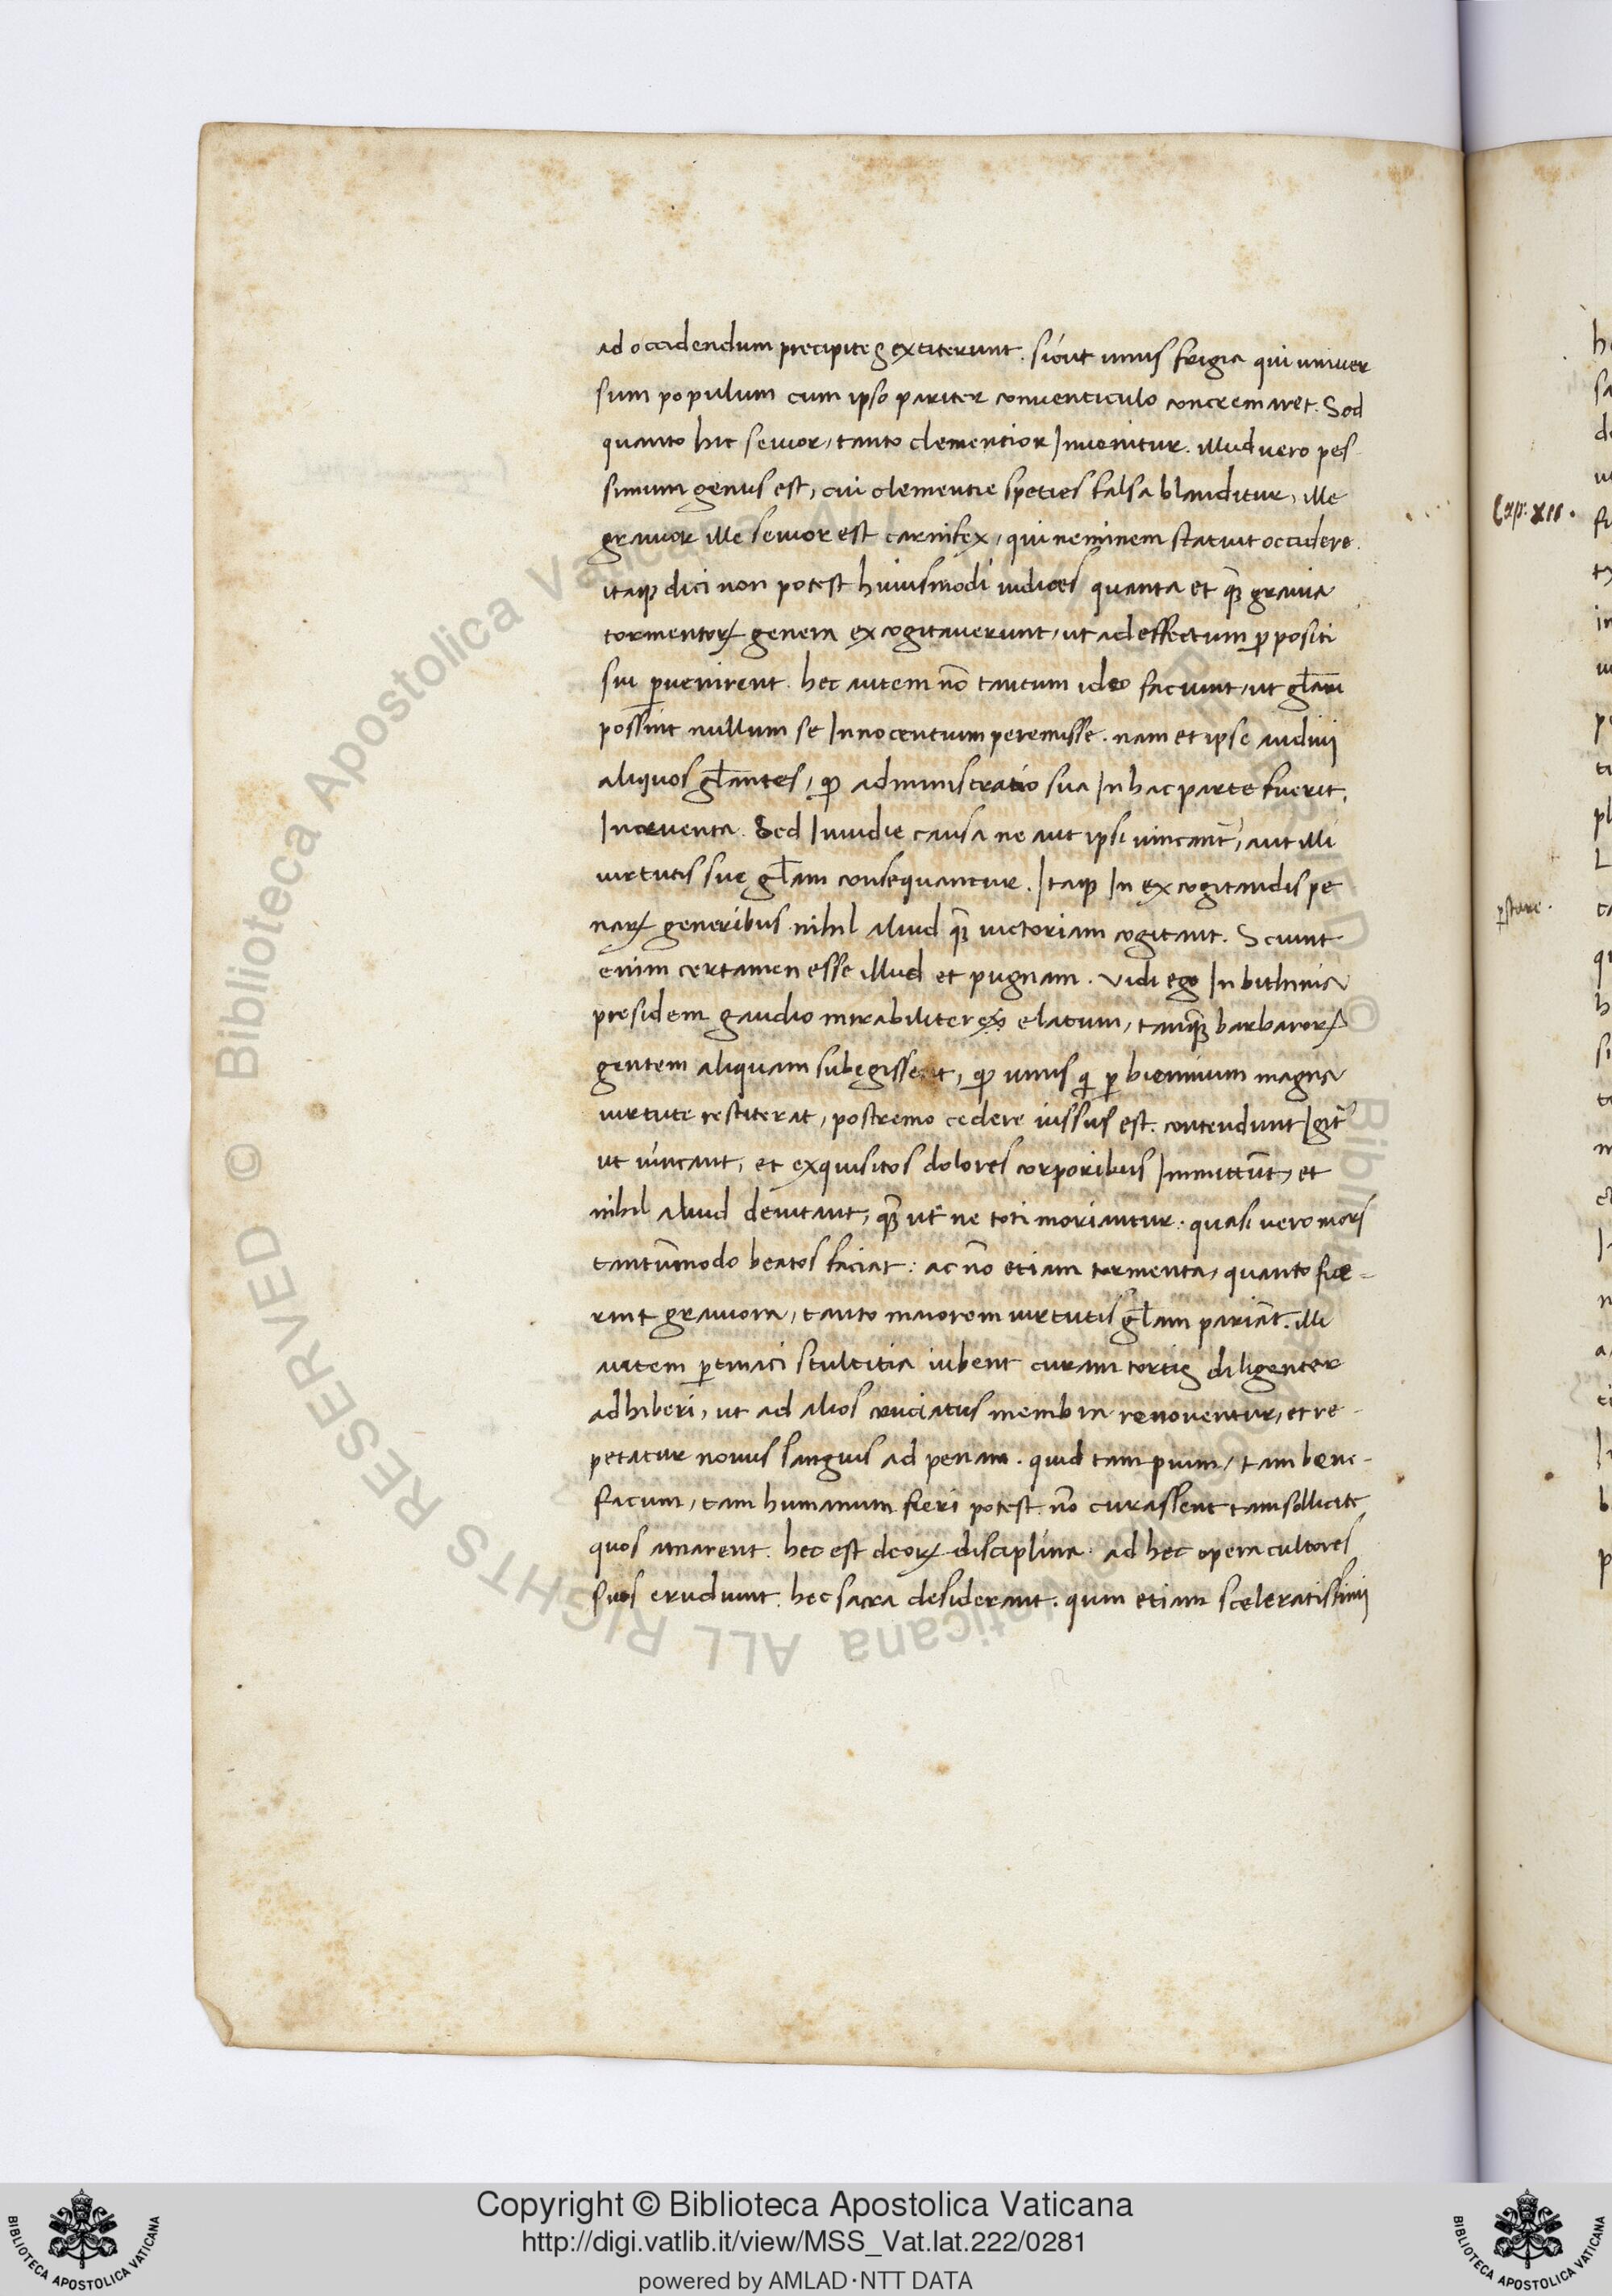 ad occidendum precipites extiterunt. sicut unus frigia qui univer
sum populum cum ipso pariter conventiculo concremavet. Sed
quanto hic sevior, tanto clementior Invenitur. illud vero pes
simum genus est, cui clementie speties falsa blanditur, ille
gravior ille sevior est carnifex, qui neminem statuit occidere.
itaqꝫ dici non potest huiusmodi iudices quanta et qͣꝫ gravia
tormentoꝝ genera excogitaverunt, ut ad effectum ꝓpositi
sui ꝑvenirent. hec autem nō tantum ideo faciunt, ut gl̄ari
possint nullum se Innocentium peremisse. nam et ipse audivi
aliquos gl̄antes, qꝫ administratio sua In hac parte fuerit
Incruenta. Sed Invidie causa ne aut ipsi vincant̄, aut illi
virtutis sue gl̄am consequantur. Itaqꝫ In excogitandis pe
naꝝ generibus nihil aliud qͣꝫ victoriam cogitant. Sciunt
enim certamen esse illud et pugnam. vidi ego In bithinia
presidem gaudio mirabiliter elatum, tanqͣꝫ barbaroꝝ
gentem aliquam subegisset, qꝫ unus qi ꝑ biennium magna
virtute restiterat, postremo cedere iussus est. contendunt Igit̄
ut vincant, et exquisitos dolores corporibus Immittūt, et
nihil aliud devitant, qͣꝫ ut ne toti moriantur. quasi vero mors
tantūmodo beatos faciat: ac nō etiam tormenta, quanto fue-
rint graviora, tanto maiorem virtutis gl̄am pariāt. illi
autem ꝑtinaci stultitia iubent curam tortis diligenter
adhiberi, ut ad alios cruciatus membra renoventur, et re-
petatur novus sanguis ad penam. quid tam pium, tam bene-
ficum, tam humanum fieri potest. nō curassent tam sollicite
quos amarent. hec est deoꝝ disciplina. ad hec opera cultores
suos erudiunt. hec sacra desiderant. quin etiam sceleratissimi
Cap. XII.
ꝑstare.
Copyright © Biblioteca Apostolica Vaticana
http://digi.vatlib.it/view/MSS_Vat.lat.222/0281
powered by AMLAD·NTT DATA
BIBLIOTECA APOSTOLICA VATICANA
BIBLIOTECA APOSTOLICA VATICANA
© Biblioteca Apostolica Vaticana ALL RIGHTS RESERVED